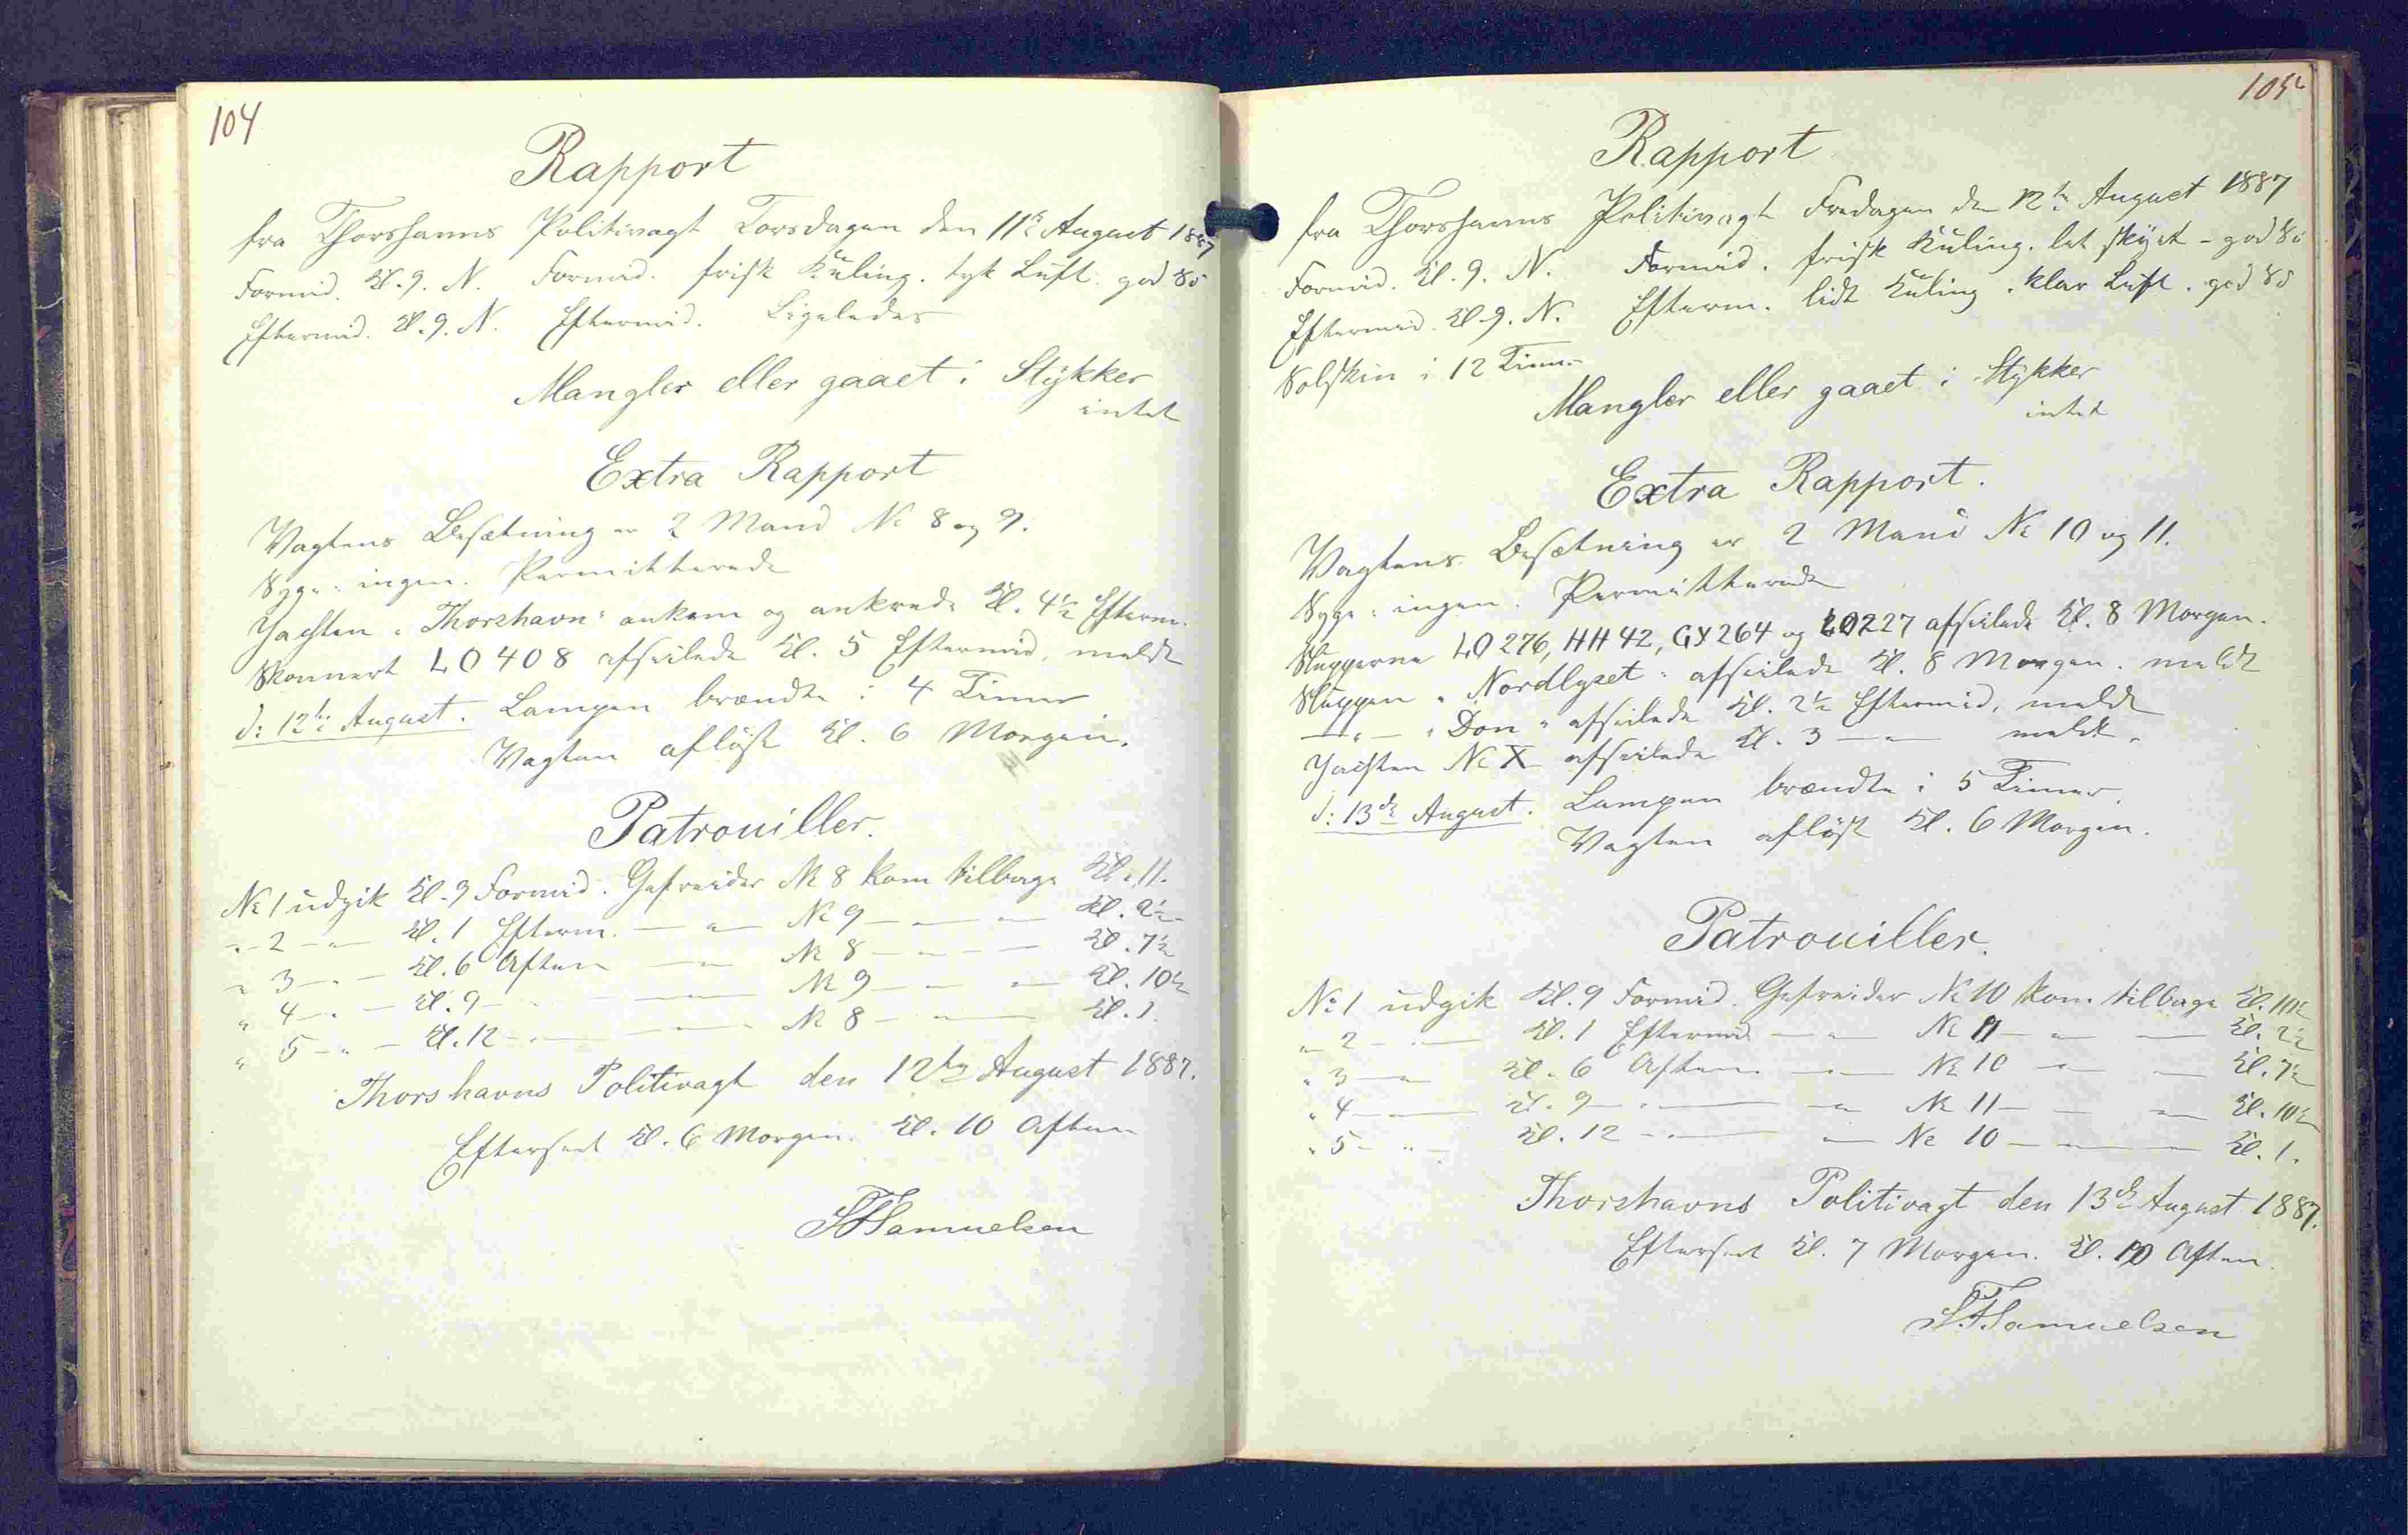 104
Rapport
fra Thorshavns Politivagt Torsdagen den 11te August 1887
Formid. Kl. 9. N. Formid. frisk Kuling. tyk Luft. god Sö
Eftermid. Kl. 9. N. Eftermid. Ligeledes
Mangler eller gaaet i Stykker
intet
Extra Rapport
Vagtens Besætning er 2 Mand No 8 og 9.
Syge: ingen. Permitterede
Jagten "Thorshavn" ankom og ankrede Kl. 4½ Efterm.
Skonnert LO 408 afseilede Kl. 5 Eftermid. meldt
d: 12te August. Lampen brændte i 4 Timer
Vagten aflöst Kl. 6 Morgen.
Patrouiller.
No 1 udgik Kl. 9 Formid. Gefreider No 8 kom tilbage Kl. 11.
" 2 — " — Kl. 1 Efterm. — " — No 9 — " — " — Kl. 2½
" 3 — " — Kl. 6 Aften — " — No 8 — " — " — Kl. 7½
" 4 — " — Kl. 9 — " — " — No 9 — " — " — Kl. 10½
" 5 — " — Kl. 12 — " — " — No 8 — " — " — Kl. 1.
Thorshavns Politivagt den 12te August 1887.
Efterseet Kl. 6 Morgen. Kl. 10 Aften
Samuelsen
105
Rapport
fra Thorshavns Politivagt Fredagen den 12te August 1887
Formid. Kl. 9. N. Formid. frisk Kuling. let skyet - god Sö
Eftermid. Kl. 9. N. Efterm. lidt Kuling. klar Luft. god Sö
Solskin i 12 Timer
Mangler eller gaaet i Stykker
intet
Extra Rapport.
Vagtens Besætning er 2 Mand No 10 og 11.
Syge: ingen. Permitterede
Slupperne LO 276, HH 42, GY 264 og LO 227 afseilede Kl. 8 Morgen.
Sluppen "Nordlyset" afseilede Kl. 8 Morgen. meldt
— " — "Don" afseilede Kl. 2½ Eftermid. meldt
Jagten No X afseilede Kl. 3 — " — meldt.
d: 13de August. Lampen brændte i 5 Timer.
Vagten aflöst Kl. 6 Morgen.
Patrouiller.
No 1 udgik Kl. 9 Formid. Gefreider No 10 kom tilbage Kl. 10½
" 2 — " — Kl. 1 Eftermid — " — No 11 — " — " — Kl. 2½
" 3 — " — Kl. 6 Aften — " — No 10 — " — " — Kl. 7½
" 4 — " — Kl. 9 — " — " — No 11 — " — " — Kl. 10½
" 5 — " — Kl. 12 — " — " — No 10 — " — " — Kl. 1.
Thorshavns Politivagt den 13de August 1887.
Efterseet Kl. 7 Morgen. Kl. 10 Aften.
Samuelsen